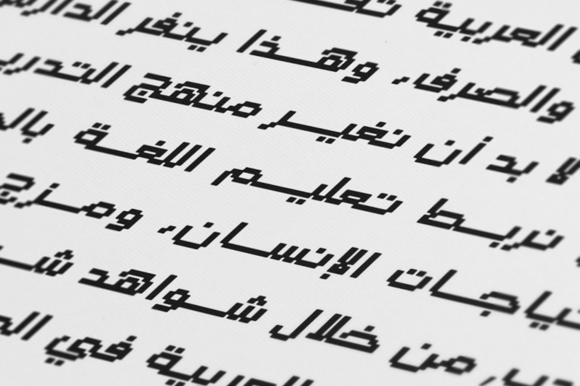 العربية
والصرف، وهذا ينفر الدارس
لا بد أن نغير منهج التدريس
نربط تعليم اللغة بال
حياجات الإنسان، ومزج
من خلال شواهد ش
العربية في ال